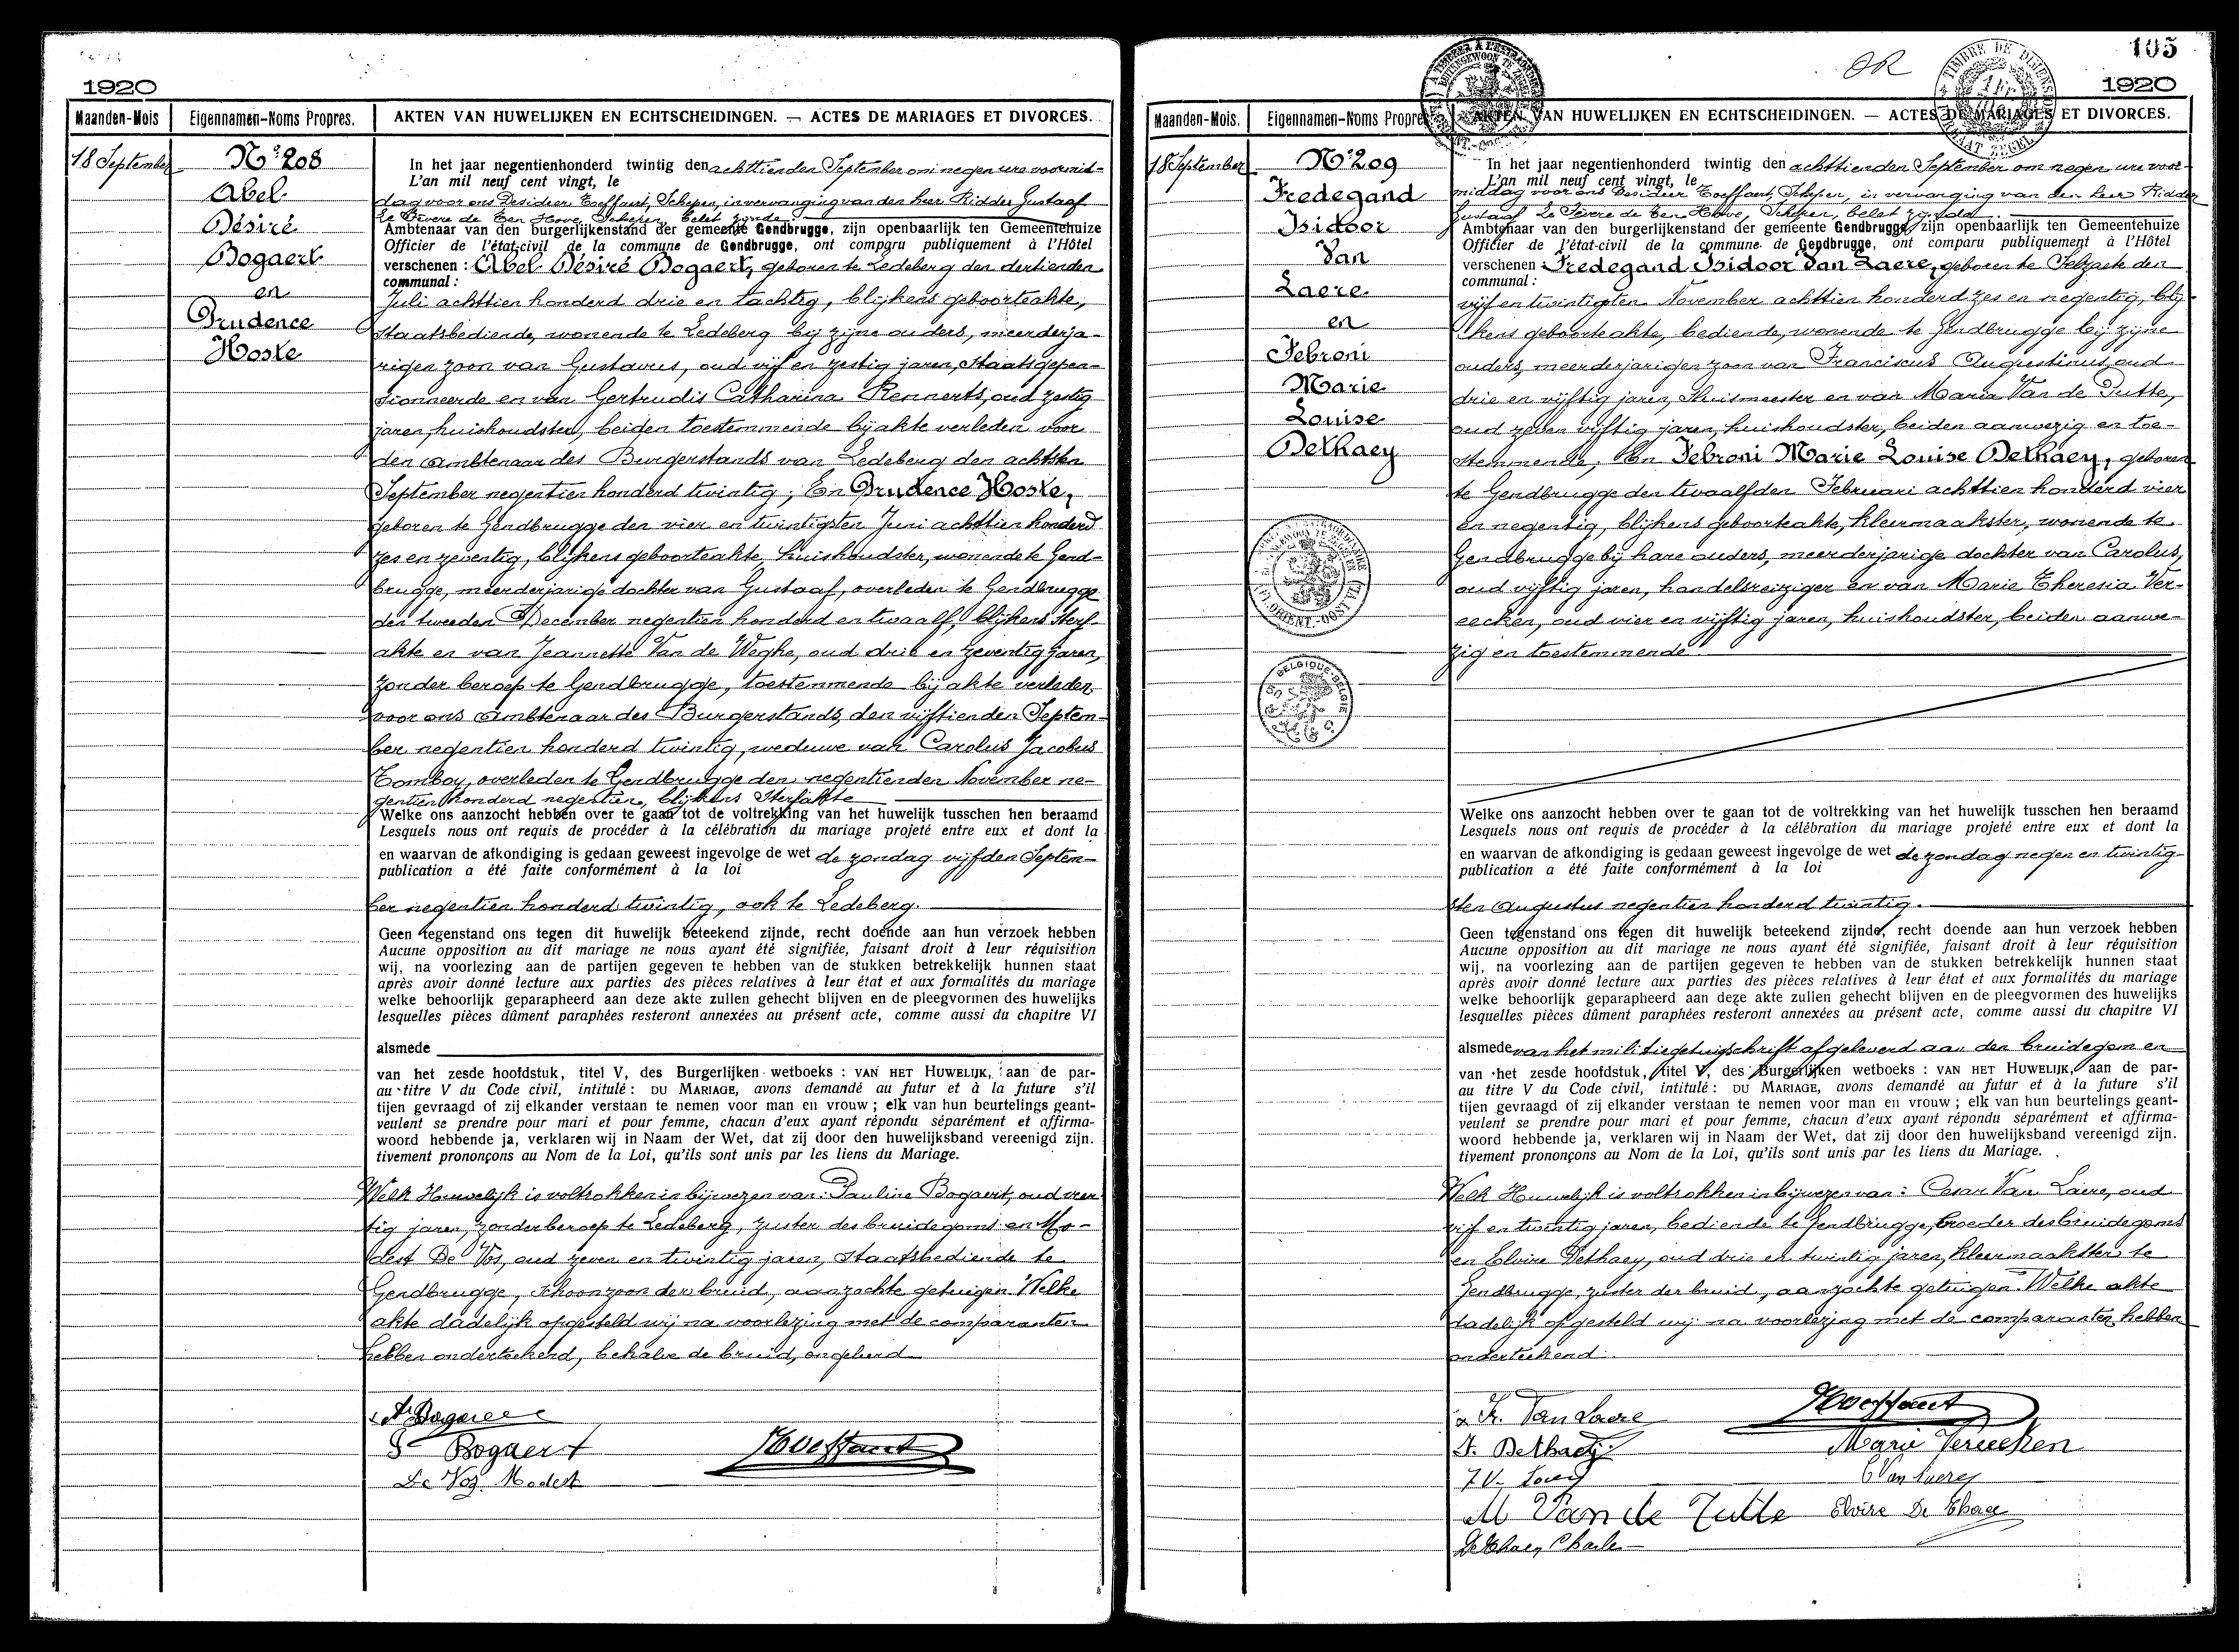 1920
Maanden-Mois
Eigennamen-Noms Propres.
AKTEN VAN HUWELIJKEN EN ECHTSCHEIDINGEN. — ACTES DE MARIAGES ET DIVORCES.
18 September
Nº 208
Abel
Désiré
Bogaert
en
Prudence
Hoste
In het jaar negentienhonderd twintig den achttienden September om negen ure voormid-
L'an mil neuf cent vingt, le
dag voor ons Desideer Toeffaert, Schepen, in vervanging van den heer Ridder Gustaaf
Le Fevere de Ten Hove, Schepen, belet zijnde
Ambtenaar van den burgerlijkenstand der gemeente Gendbrugge, zijn openbaarlijk ten Gemeentehuize
Officier de l'état-civil de la commune de Gendbrugge, ont comparu publiquement à l'Hôtel
verschenen : Abel Désiré Bogaert, geboren te Ledeberg den dertienden
communal :
Juli achttien honderd drie en tachtig, blijkens geboorteakte,
Staatsbediende, wonende te Ledeberg bij zijne ouders, meerderja-
rigen zoon van Gustavus, oud vijf en zestig jaren, Staatsgepen-
sionneerde en van Gertrudis Catharina Rennerts, oud zestig
jaren, huishoudster, beiden toestemmende bij akte verleden voor
den ambtenaar des Burgerstands van Ledeberg den achtsten
September negentien honderd twintig; En Prudence Hoste,
geboren te Gendbrugge den vier en twintigsten Juni achttien honderd
zes en zeventig, blijkens geboorteakte, huishoudster, wonende te Gend-
brugge, meerderjarige dochter van Gustaaf, overleden te Gendbrugge
den tweeden December negentien honderd en twaalf, blijkens sterf-
akte en van Jeannette Van de Weghe, oud drie en zeventig jaren,
zonder beroep te Gendbrugge, toestemmende bij akte verleden
voor ons ambtenaar des Burgerstands, den vijftienden Septem-
ber negentien honderd twintig, weduwe van Carolus Jacobus
Comboy, overleden te Gendbrugge den negentienden November ne-
gentien honderd negentien, blijkens Sterfakte
Welke ons aanzocht hebben over te gaan tot de voltrekking van het huwelijk tusschen hen beraamd
Lesquels nous ont requis de procéder à la célébration du mariage projeté entre eux et dont la
en waarvan de afkondiging is gedaan geweest ingevolge de wet de zondag vijfden Septem-
publication a été faite conformément à la loi
ber negentien honderd twintig, ook te Ledeberg.
Geen tegenstand ons tegen dit huwelijk beteekend zijnde, recht doende aan hun verzoek hebben
Aucune opposition au dit mariage ne nous ayant été signifiée, faisant droit à leur réquisition
wij, na voorlezing aan de partijen gegeven te hebben van de stukken betrekkelijk hunnen staat
après avoir donné lecture aux parties des pièces relatives à leur état et aux formalités du mariage
welke behoorlijk geparapheerd aan deze akte zullen gehecht blijven en de pleegvormen des huwelijks
lesquelles pièces dûment paraphées resteront annexées au présent acte, comme aussi du chapitre VI
alsmede
van het zesde hoofdstuk, titel V, des Burgerlijken wetboeks : VAN HET HUWELIJK, aan de par-
au titre V du Code civil, intitulé : DU MARIAGE, avons demandé au futur et à la future s'il
tijen gevraagd of zij elkander verstaan te nemen voor man en vrouw ; elk van hun beurtelings geant-
veulent se prendre pour mari et pour femme, chacun d'eux ayant répondu séparément et affirma-
woord hebbende ja, verklaren wij in Naam der Wet, dat zij door den huwelijksband vereenigd zijn.
tivement prononçons au Nom de la Loi, qu'ils sont unis par les liens du Mariage.
Welk Huwelijk is voltrokken in bijwezen van: Pauline Bogaert, oud veer
tig jaren, zonder beroep te Ledeberg, zuster des bruidegoms en Mo-
dest De Vos, oud zeven en twintig jaren, Staatsbediende te
Gendbrugge, schoonzoon der bruid, aanzochte getuigen. Welke
akte dadelijk opgesteld wij na voorlezing met de comparanten
hebben onderteekend, behalve de bruid, ongeleerd
A. Bogaert
Bogaert
De Vos Modest
Toeffaert
105
OR
1920
Maanden-Mois.
Eigennamen-Noms Propres
AKTEN VAN HUWELIJKEN EN ECHTSCHEIDINGEN. — ACTES DE MARIAGES ET DIVORCES.
18 September
Nº 209
Fredegand
Isidoor
Van
Laere
en
Febroni
Marie
Louise
Dethaey
BELGIQUE-BELGIE
In het jaar negentienhonderd twintig den achttienden September om negen ure voor-
L'an mil neuf cent vingt, le
middag voor ons Desideer Toeffaert, Schepen, in vervanging van den heer Ridder
Gustaaf Le Fevere de Ten Hove, Schepen, belet zijnde
Ambtenaar van den burgerlijkenstand der gemeente Gendbrugge, zijn openbaarlijk ten Gemeentehuize
Officier de l'état-civil de la commune de Gendbrugge, ont comparu publiquement à l'Hôtel
verschenen : Fredegand Isidoor Van Laere, geboren te Selzaete den
communal :
vijf en twintigsten November achttien honderd zes en negentig, blij-
kens geboorteakte, bediende, wonende te Gendbrugge bij zijne
ouders, meerderjarigen zoon van Franciscus Augustinus, oud
drie en vijftig jaren, Thuismeester en van Maria Van de Putte,
oud zeven vijftig jaren, huishoudster, beiden aanwezig en toe-
stemmende, En Febroni Marie Louise Dethaey, geboren
te Gendbrugge den twaalfden Februari achttien honderd vier
en negentig, blijkens geboorteakte, kleermaakster, wonende te
Gendbrugge bij hare ouders, meerderjarige dochter van Carolus,
oud vijftig jaren, handelsreiziger en van Marie Theresia Ver-
eecken, oud vier en vijftig jaren, huishoudster, beiden aanwe-
zig en toestemmende
Welke ons aanzocht hebben over te gaan tot de voltrekking van het huwelijk tusschen hen beraamd
Lesquels nous ont requis de procéder à la célébration du mariage projeté entre eux et dont la
en waarvan de afkondiging is gedaan geweest ingevolge de wet de zondag negen en twintig-
publication a été faite conformément à la loi
sten Augustus negentien honderd twintig.
Geen tegenstand ons tegen dit huwelijk beteekend zijnde, recht doende aan hun verzoek hebben
Aucune opposition au dit mariage ne nous ayant été signifiée, faisant droit à leur réquisition
wij, na voorlezing aan de partijen gegeven te hebben van de stukken betrekkelijk hunnen staat
après avoir donné lecture aux parties des pièces relatives à leur état et aux formalités du mariage
welke behoorlijk geparapheerd aan deze akte zullen gehecht blijven en de pleegvormen des huwelijks
lesquelles pièces dûment paraphées resteront annexées au présent acte, comme aussi du chapitre VI
alsmede van het militiegetuigschrift afgeleverd aan den bruidegom en
van het zesde hoofdstuk, titel V, des Burgerlijken wetboeks : VAN HET HUWELIJK, aan de par-
au titre V du Code civil, intitulé : DU MARIAGE, avons demandé au futur et à la future s'il
tijen gevraagd of zij elkander verstaan te nemen voor man en vrouw ; elk van hun beurtelings geant-
veulent se prendre pour mari et pour femme, chacun d'eux ayant répondu séparément et affirma-
woord hebbende ja, verklaren wij in Naam der Wet, dat zij door den huwelijksband vereenigd zijn.
tivement prononçons au Nom de la Loi, qu'ils sont unis par les liens du Mariage.
Welk Huwelijk is voltrokken in bijwezen van: Cesar Van Laere, oud
vijf en twintig jaren, bediende te Gendbrugge, broeder des bruidegoms
en Elvire Dethaey, oud drie en twintig jaren, kleermaakster te
Gendbrugge, zuster der bruid, aanzochte getuigen. Welke akte
dadelijk opgesteld wij na voorlezing met de comparanten hebben
onderteekend.
Fr. Van Laere
Toeffaert
F. Dethaey
Marie Vereecken
C Van Laere
M Van de Putte
Elvire De Thaey
Dethaey Charle